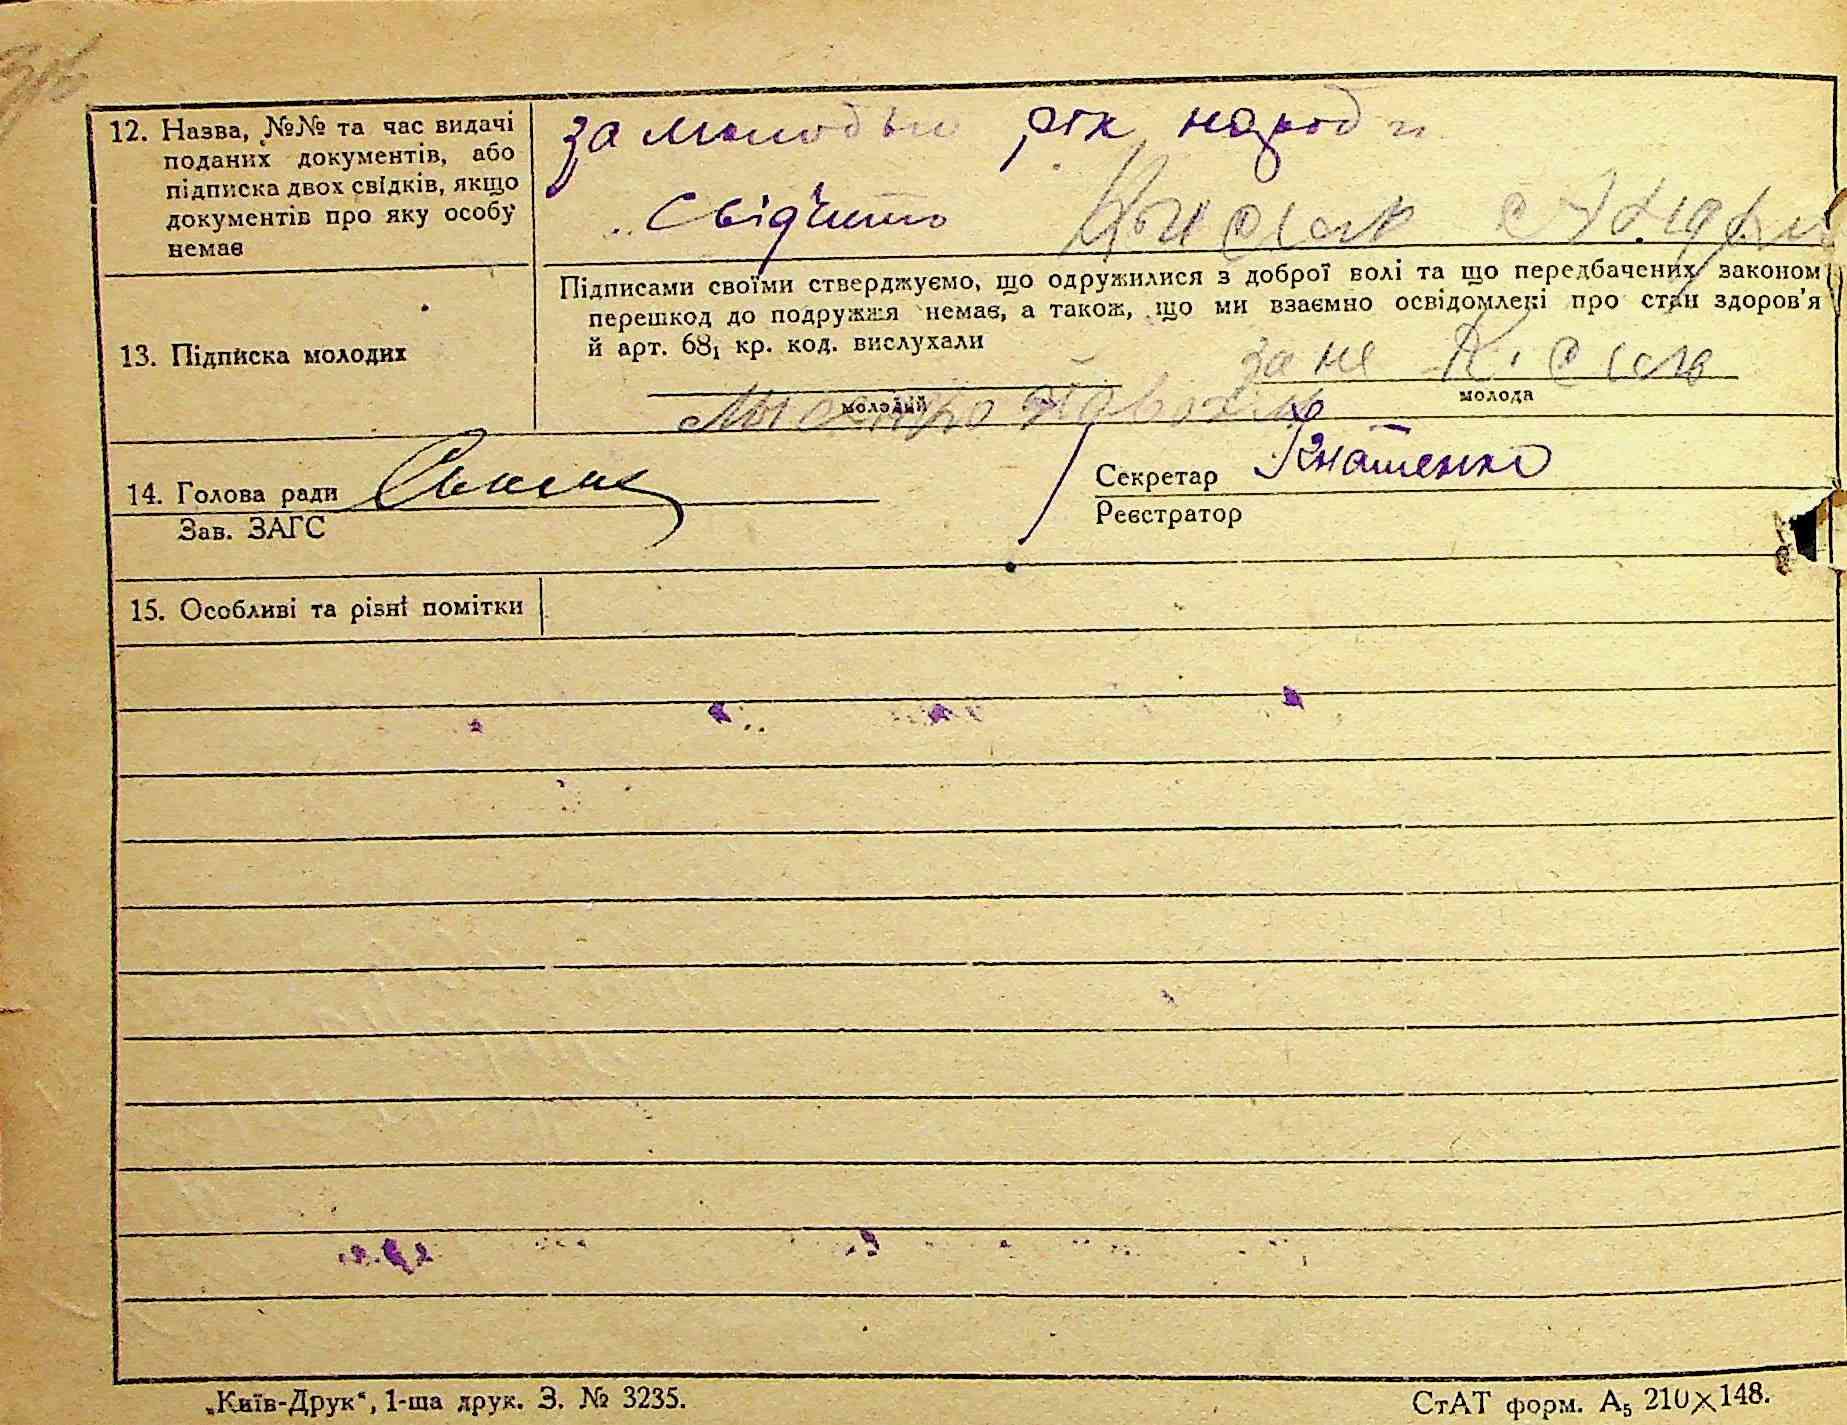 12. Назва, №№ та час видачі
поданих документів, або
підписка двох свідків, якщо
документів про яку особу
немає
за молодью рік народ
свідчить
13. Підписка молодих
Підписами своїми стверджуємо, що одружилися з доброї волі та що передбачених законом
перешкод до подружжя немає, а також, що ми взаємно освідомлені про стан здоров'я
й арт. 68₁ кр. код. вислухали
за не
молодий
молода
14. Голова ради
Зав. ЗАГС
Секретар Ігнатенко
Реєстратор
15. Особливі та різні помітки
„Київ-Друк“, 1-ша друк. З. № 3235.
СтАТ форм. А₅ 210×148.